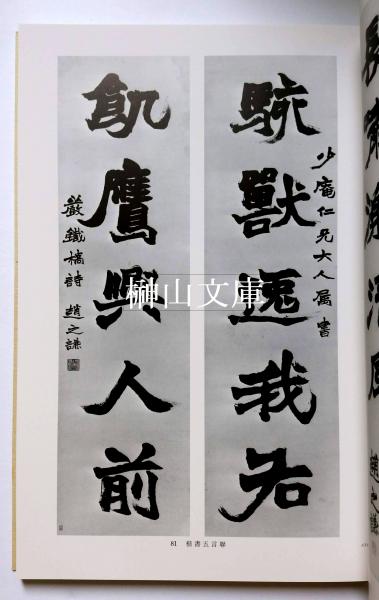 少庵仁兄大人属書
駭獸逸我右
飢鷹興人前
嚴鐵橋詩 趙之謙
榊山文庫
81 楷書五言聯